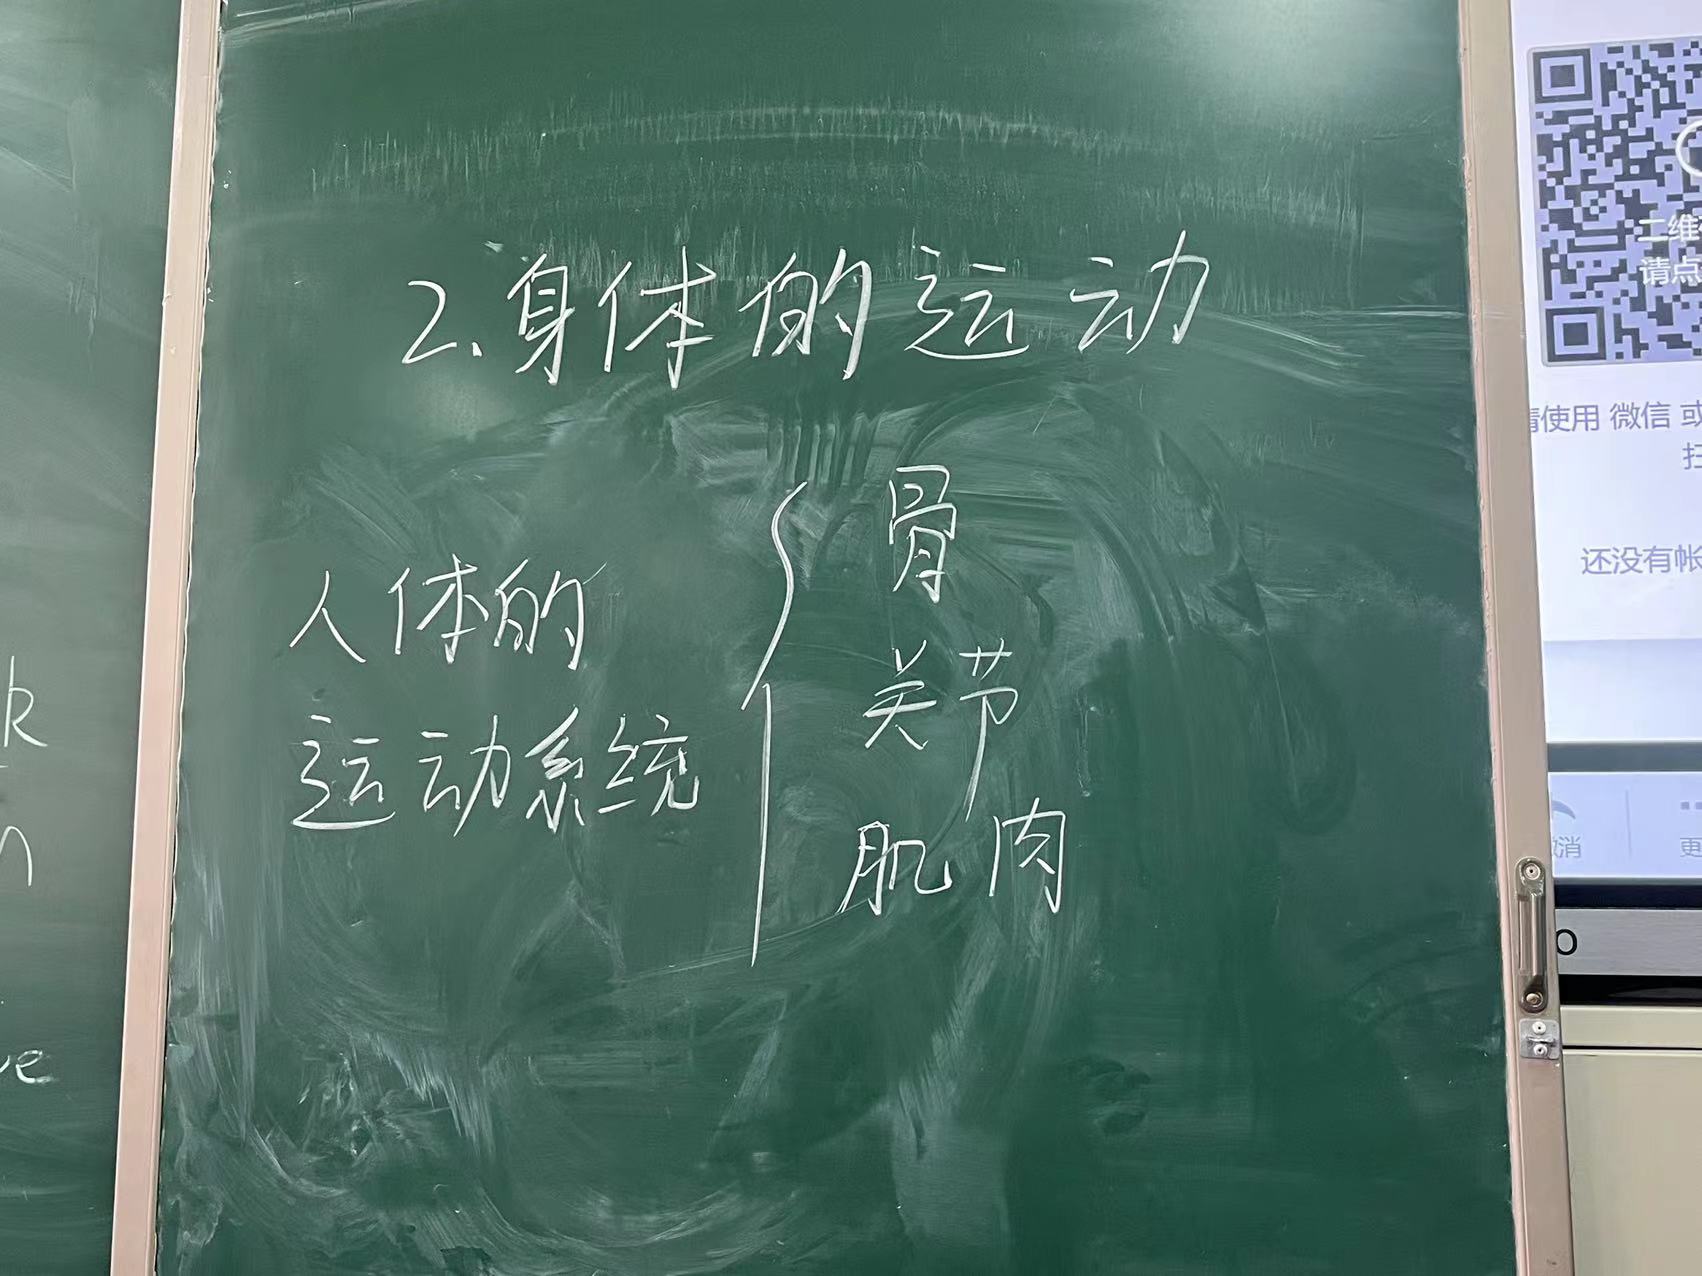 2.身体的运动
人体的
运动系统
骨
关节
肌肉
二维
请点
使用 微信 或
还没有帐
消
更
k
n
ve